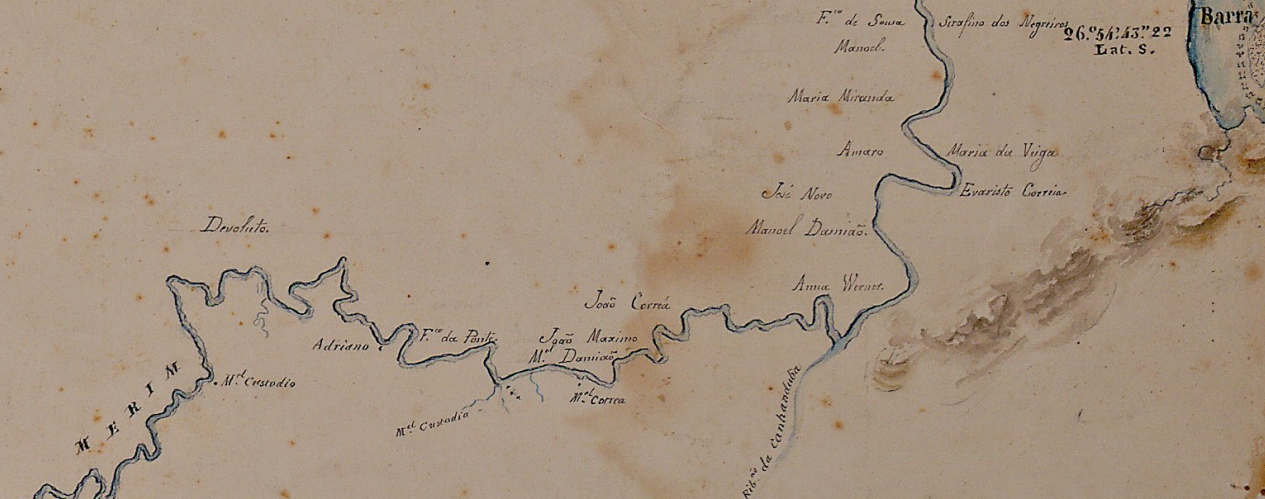 F.co de Sousa
Serafino dos Negreiros
Barra
26.º54'43"22
Lat. S.
Manoel.
Maria Miranda
Amaro
Maria da Veiga
José Novo
Evaristo Correia
Manoel Damião.
Devoluto.
Anna Werner.
João Correá
Adriano
F.co da Ponte.
João Maximo
M.el Damião
M.el Custodio
M.el Correa
M.el Custodio
MERIM
Rib.ão da Canhanduba